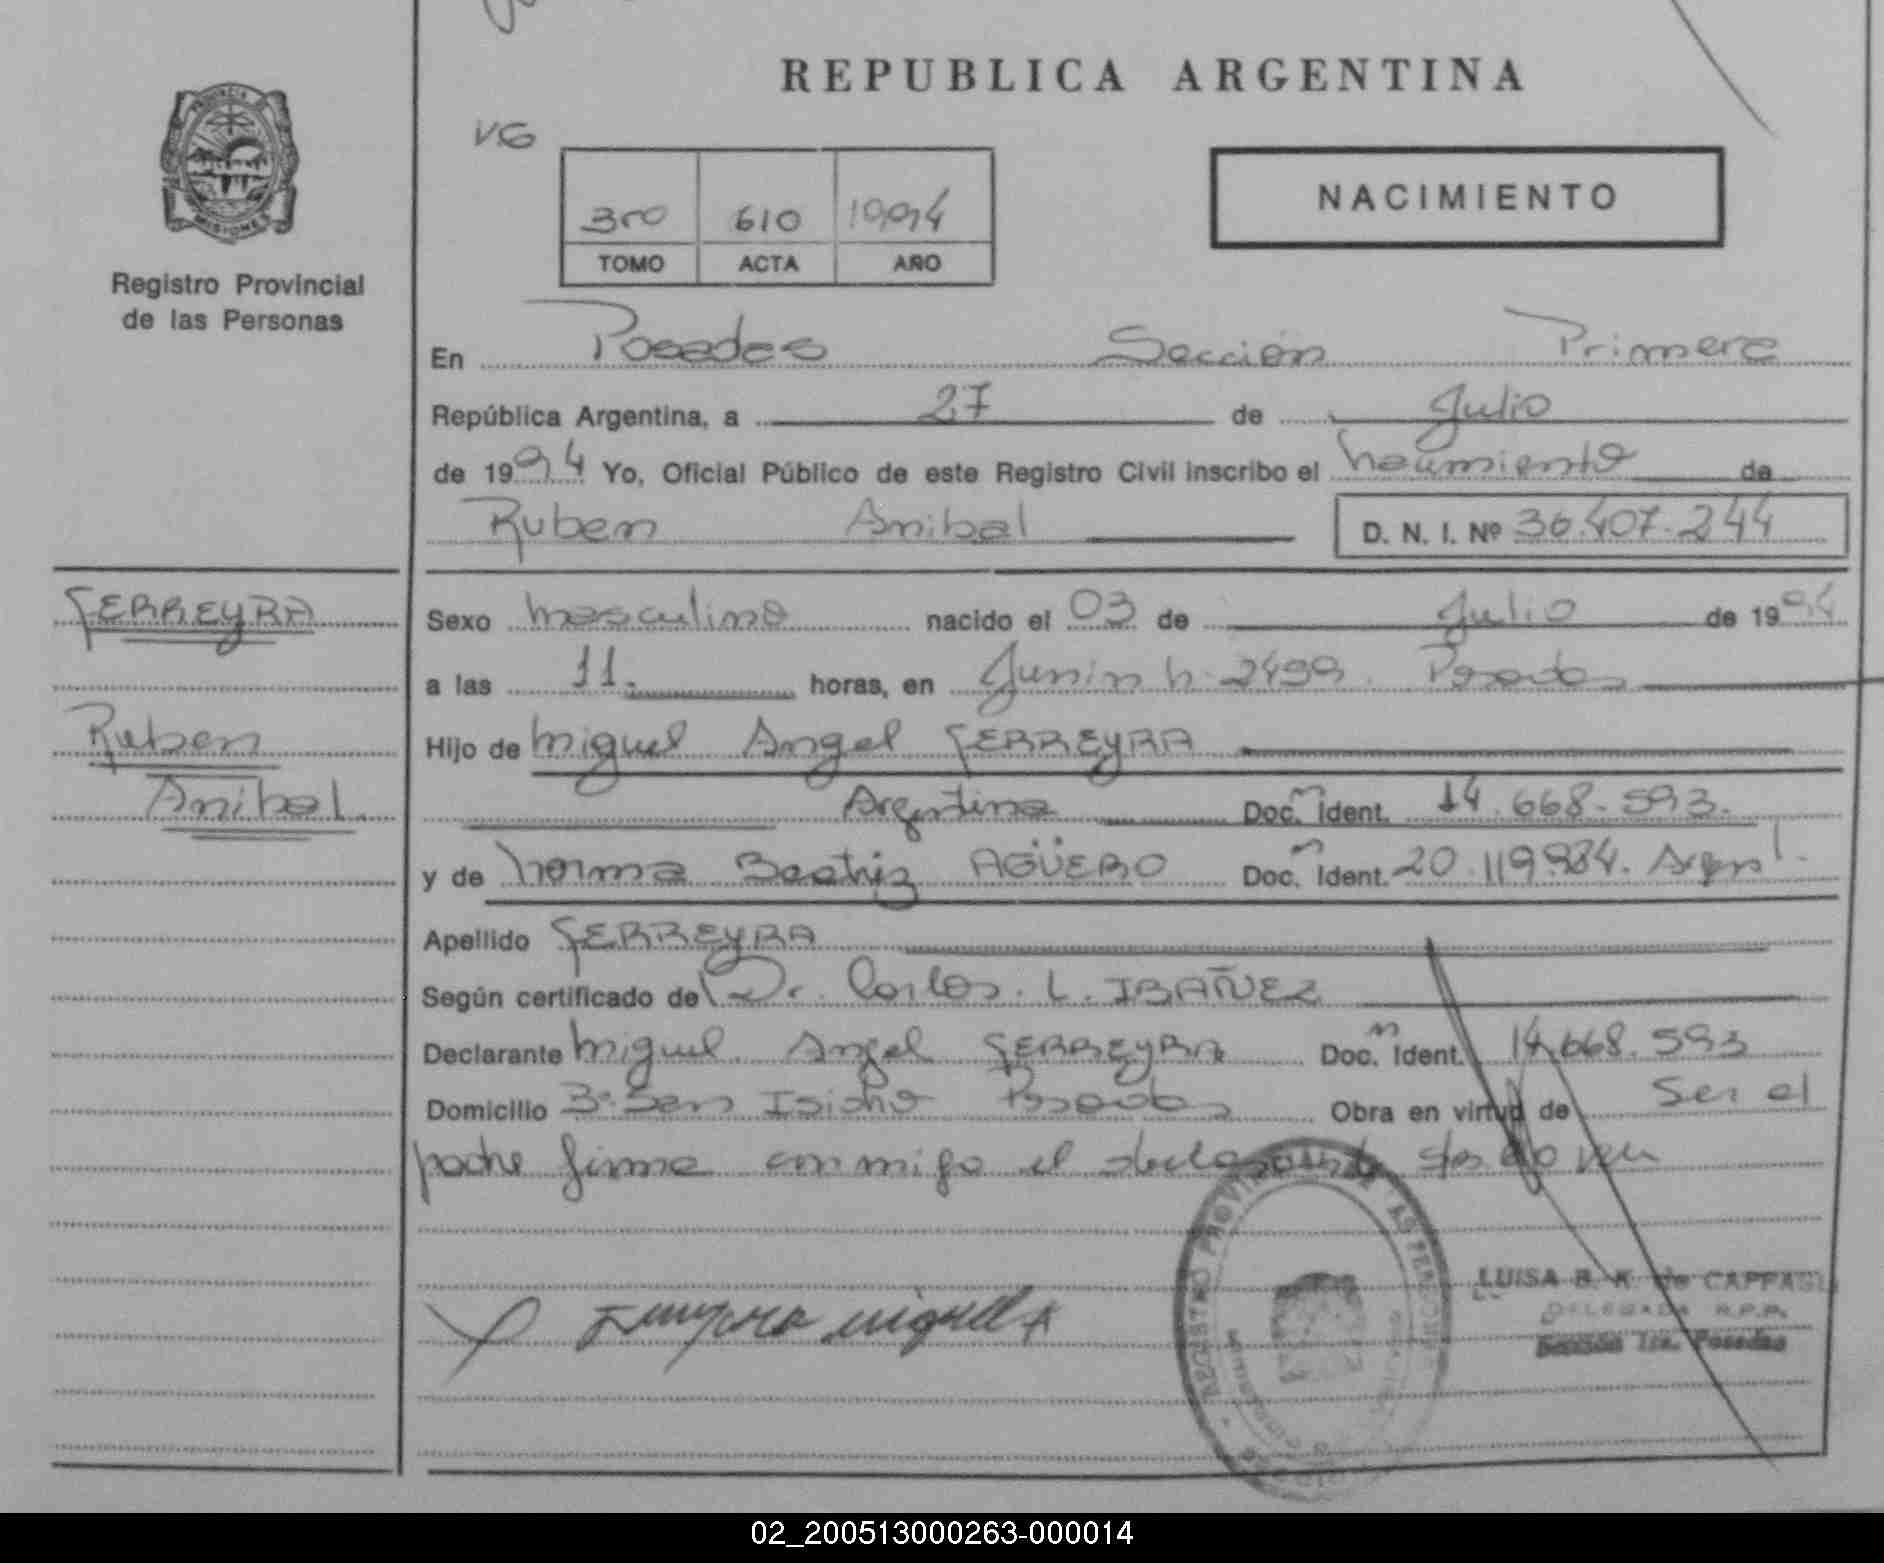 REPUBLICA ARGENTINA
VG
NACIMIENTO
3ro 610 1994
TOMO ACTA AÑO
PROVINCIA DE MISIONES
Registro Provincial
de las Personas
En Posadas Sección Primera
República Argentina, a 27 de Julio
de 1994 Yo, Oficial Público de este Registro Civil inscribo el nacimiento de
Ruben Anibal D. N. I. Nº 36.407.244
FERREYRA
Ruben
Anibal.
Sexo masculino nacido el 03 de Julio de 1994
a las 11. horas, en Junin n. 2499. Posadas
Hijo de Miguel Angel FERREYRA
Argentina Doc. Ident. 14.668.593.
y de Norma Beatriz AGÜERO Doc. Ident. 20.119.934. Argent.
Apellido FERREYRA
Según certificado de Dr. Carlos. L. IBAÑEZ
Declarante Miguel Angel FERREYRA Doc. Ident. 14.668.593
Domicilio Bº San Isidro Posadas Obra en virtud de Ser el
padre firma conmigo el declarante doy fe
Ferreyra Miguel A
REGISTRO PROVINCIAL DE LAS PERSONAS
LUISA B. K. de
DELEGADA R.P.P.
Sección 1ra. Posadas
02_200513000263-000014